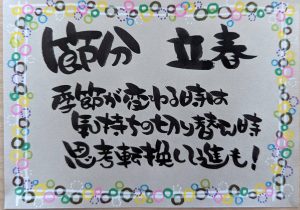 節分 立春
季節が変わる時は
気持ちの切り替え時
思考転換して進も!